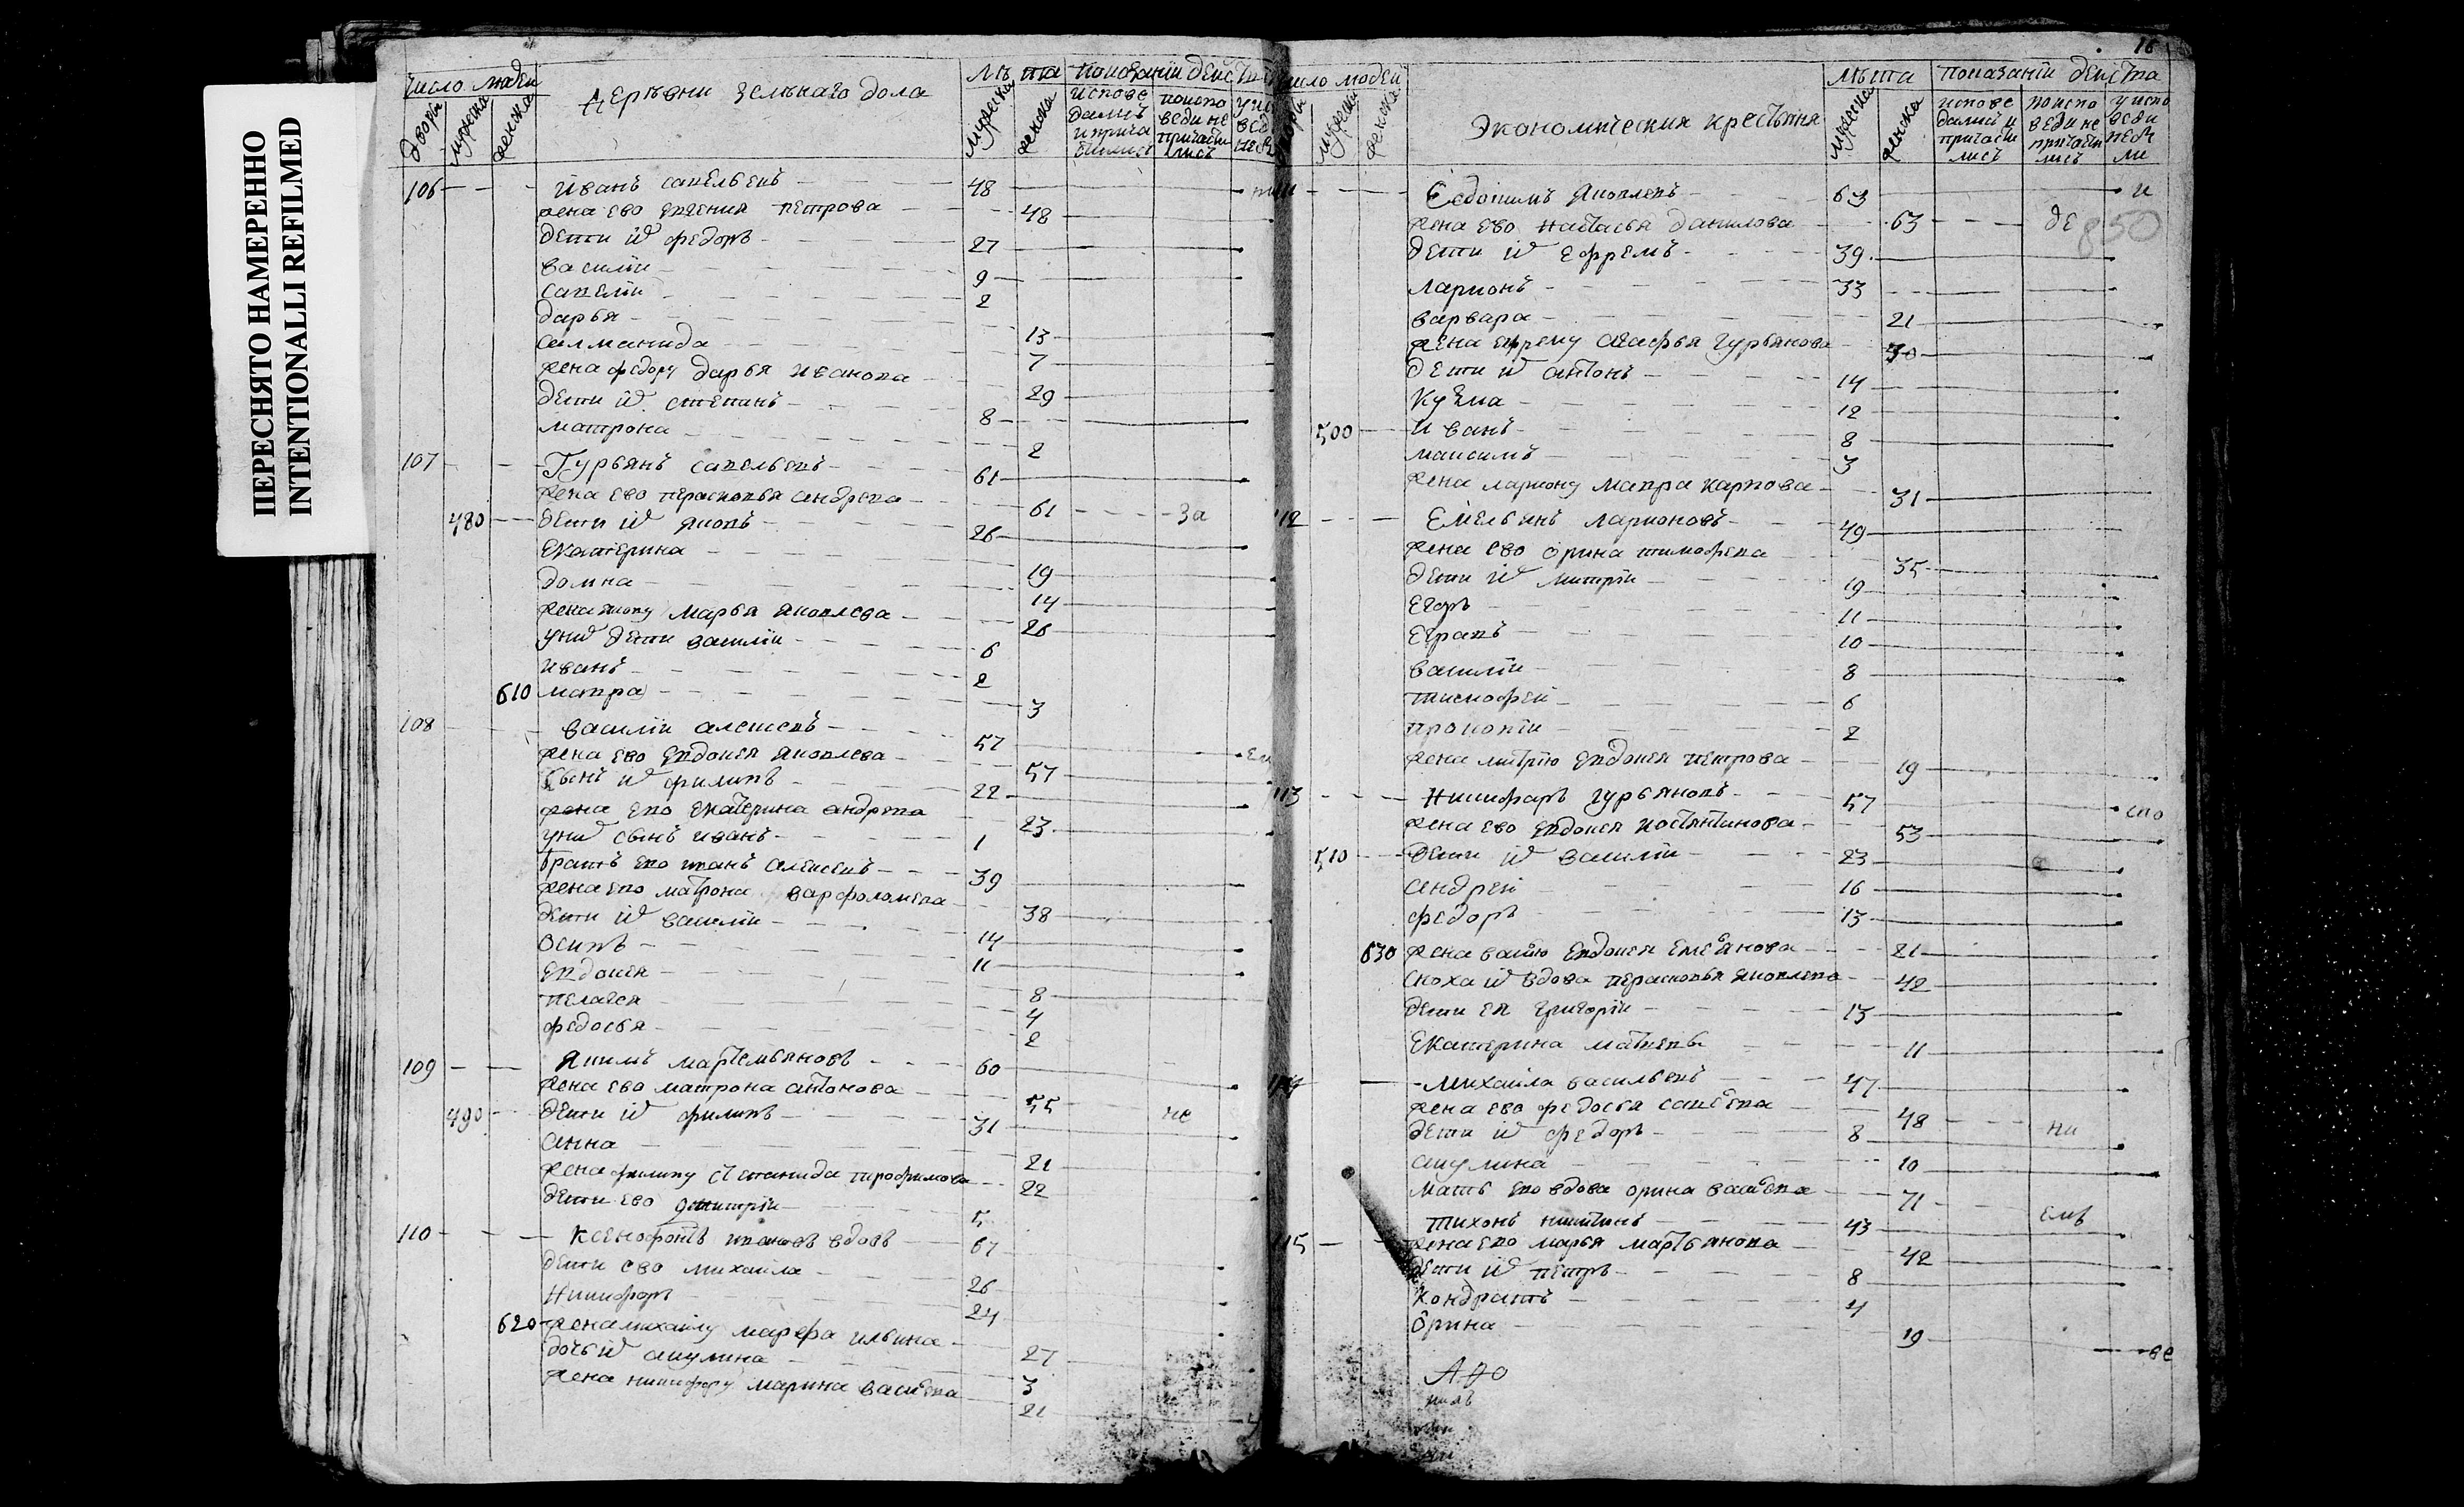 ПЕРЕСНЯТО НАМЕРЕННО
INTENTIONALLI REFILMED
число людей
дворы
мужеска
женска
деревни зеленаго дола
лѣта
мужеска
женска
показании дейст
испове
дались
и прича
стились
по испо
веди не
причасти
лись
106 Иванъ савельевъ 48
жена ево евгения петрова 48
дети их федоръ 27
василии 9
савелии 2
дарья 13
7
жена федору дарья иванова 29
дети их степанъ 8
матрона 2
107 Гурьянъ савельевъ 61
жена ево парасковья андреева 61 за
480 дети их яковъ 26
Екатерина 19
домна 14
жена якову марья яковлева 26
у них дети василии 6
иванъ 2
610 мавра 3
108 василии алексеевъ 57
жена ево евдокея яковлева 57
сынъ их филипъ 22
жена ево екатерина андреева 23
у них сынъ иванъ 1
братъ ево иванъ алексеевъ 39
жена ево матрона варфоломеева 38
дети их василии 14
осипъ 11
евдокея 8
пелагея 4
федосья 2
109 якимъ мартемьяновъ 60
жена ево матрона антонова 55 не
490 дети их филипъ 31
анна 21
жена филипу степанида трофимова 22
дети ево дмитрии 5
110 ксенофонтъ ивановъ вдовъ 67
дети ево михаила 26
Никифоръ 24
620 жена михаилу марфа ильина 27
дочь их акулина 3
жена никифору марина васильева 21
16
число людей
мужеска
женска
экономическия крестьяня
лѣта
мужеска
женска
показании действа
испове
дались и
причасти
лись
по испо
веди не
причасти
лись
у испо
веди
не бы
ли
Евдокимъ яковлевъ 63 и
жена ево настасья данилова 63 де
850
дети их ефремъ 39
ларионъ 33
варвара 21
жена ефрему агафья гурьянова 30
дети их антонъ 14
Кузма 12
500 Иванъ 8
максимъ 3
жена лариону мавра карпова 31
112 Емельянъ ларионовъ 49
жена ево орина тимофеева 35
дети их митрии 19
Егоръ 11
Евграпъ 10
василии 8
тимофеи 6
прокопии 2
жена митрию евдокея петрова 19
113 Никифоръ гурьяновъ 57 спо
жена ево евдокея костянтинова 53
510 дети их василии 23
андреи 16
федоръ 13
630 жена васию евдокея емельянова 21
сноха их вдова парасковья яковлева 42
дети ея григории 13
Екатерина матвеева 11
114 михаила васильевъ 47
жена ево федосья савельева 48 ни
дети их федоръ 8
акулина 10
мать ево вдова орина васильева 71 емъ
115 тихонъ никитинъ 43
жена ево марья мартьянова 42
дети их петръ 8
Кондратъ 4
орина 19 ве